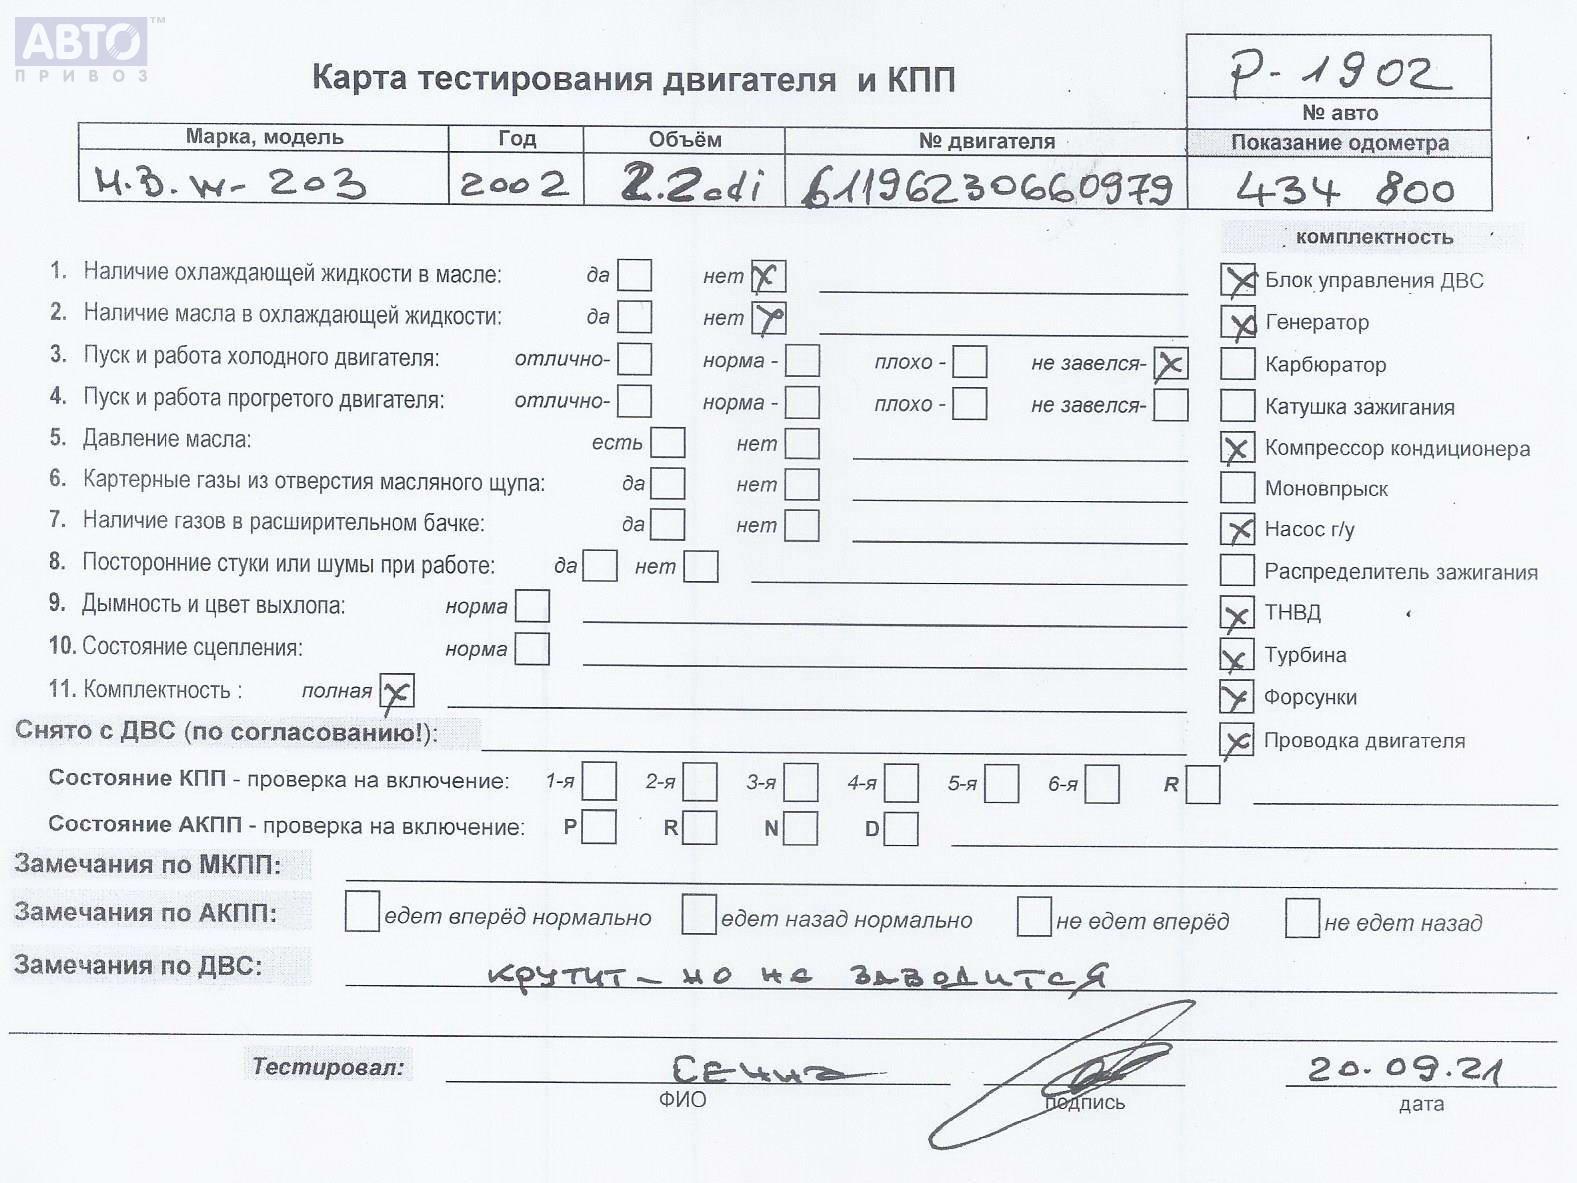 АВТО™
ПРИВОЗ
Карта тестирования двигателя и КПП
P-1902
№ авто
Марка, модель Год Объём № двигателя Показание одометра
М.В. W-203 2002 2.2cdi 61196230660979 434 800
комплектность
1. Наличие охлаждающей жидкости в масле: да нет x
Блок управления ДВС
2. Наличие масла в охлаждающей жидкости: да нет x
Генератор
3. Пуск и работа холодного двигателя: отлично- норма - плохо - не завелся- x
Карбюратор
4. Пуск и работа прогретого двигателя: отлично- норма - плохо - не завелся-
Катушка зажигания
5. Давление масла: есть нет
Компрессор кондиционера
6. Картерные газы из отверстия масляного щупа: да нет
Моновпрыск
7. Наличие газов в расширительном бачке: да нет
Насос г/у
8. Посторонние стуки или шумы при работе: да нет
Распределитель зажигания
9. Дымность и цвет выхлопа: норма
ТНВД
10. Состояние сцепления: норма
Турбина
11. Комплектность : полная x
Форсунки
Снято с ДВС (по согласованию!):
Проводка двигателя
Состояние КПП - проверка на включение: 1-я 2-я 3-я 4-я 5-я 6-я R
Состояние АКПП - проверка на включение: P R N D
Замечания по МКПП:
Замечания по АКПП: едет вперёд нормально едет назад нормально не едет вперёд не едет назад
Замечания по ДВС: крутит - но не заводится
Тестировал: 20.09.21
ФИО подпись дата